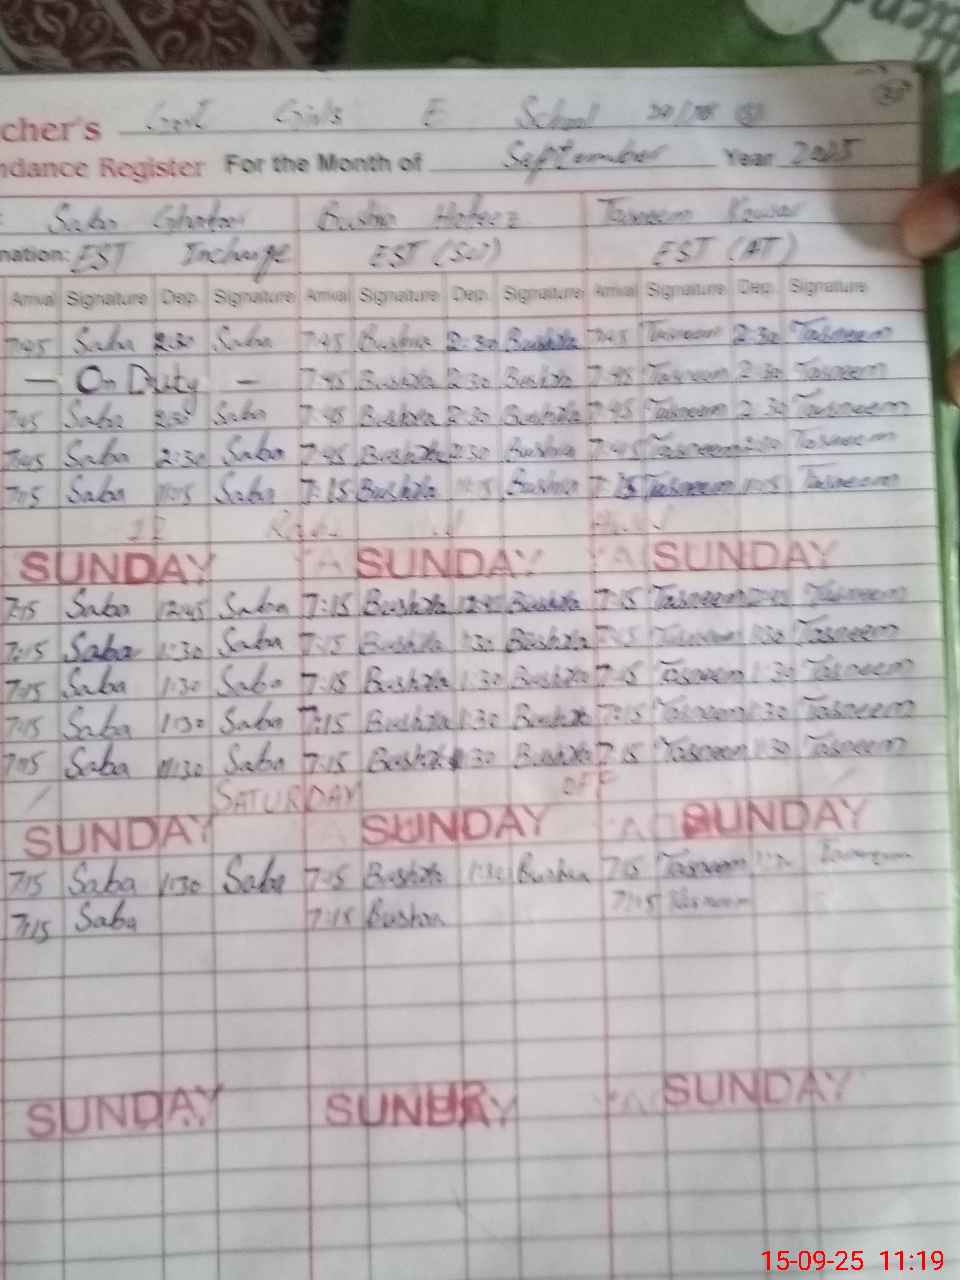 cher's Govt Girls E School
ndance Register For the Month of September Year 2025
Saba Bushra Hafeez Tasneem Kousar
nation: EST Incharge EST (Sci) EST (AT)
Arrival Signature Dep. Signature Arrival Signature Dep. Signature Arrival Signature Dep. Signature
7:45 Saba 2:30 Saba 7:45 Bushra 2:30 Bushra 7:45 Tasneem 2:30 Tasneem
— On Duty — 7:45 Bushra 2:30 Bushra 7:45 Tasneem 2:30 Tasneem
7:45 Saba 2:30 Saba 7:45 Bushra 2:30 Bushra 7:45 Tasneem 2:30 Tasneem
7:45 Saba 2:30 Saba 7:45 Bushra 2:30 Bushra 7:45 Tasneem 2:30 Tasneem
7:15 Saba 11:15 Saba 7:15 Bushra 11:15 Bushra 7:15 Tasneem 11:15 Tasneem
12
SUNDAY SUNDAY SUNDAY
7:15 Saba 12:45 Saba 7:15 Bushra 12:45 Bushra 7:15 Tasneem 12:45 Tasneem
7:15 Saba 1:30 Saba 7:15 Bushra 1:30 Bushra 7:15 Tasneem 1:30 Tasneem
7:15 Saba 1:30 Saba 7:15 Bushra 1:30 Bushra 7:15 Tasneem 1:30 Tasneem
7:15 Saba 1:30 Saba 7:15 Bushra 1:30 Bushra 7:15 Tasneem 1:30 Tasneem
7:15 Saba 11:30 Saba 7:15 Bushra 11:30 Bushra 7:15 Tasneem 11:30 Tasneem
SATURDAY OFF
SUNDAY SUNDAY SUNDAY
7:15 Saba 1:30 Saba 7:15 Bushra 1:30 Bushra 7:15 Tasneem Tasneem
7:15 Saba 7:15 Bushra 7:15 Tasneem
SUNDAY SUNDAY SUNDAY
15-09-25 11:19